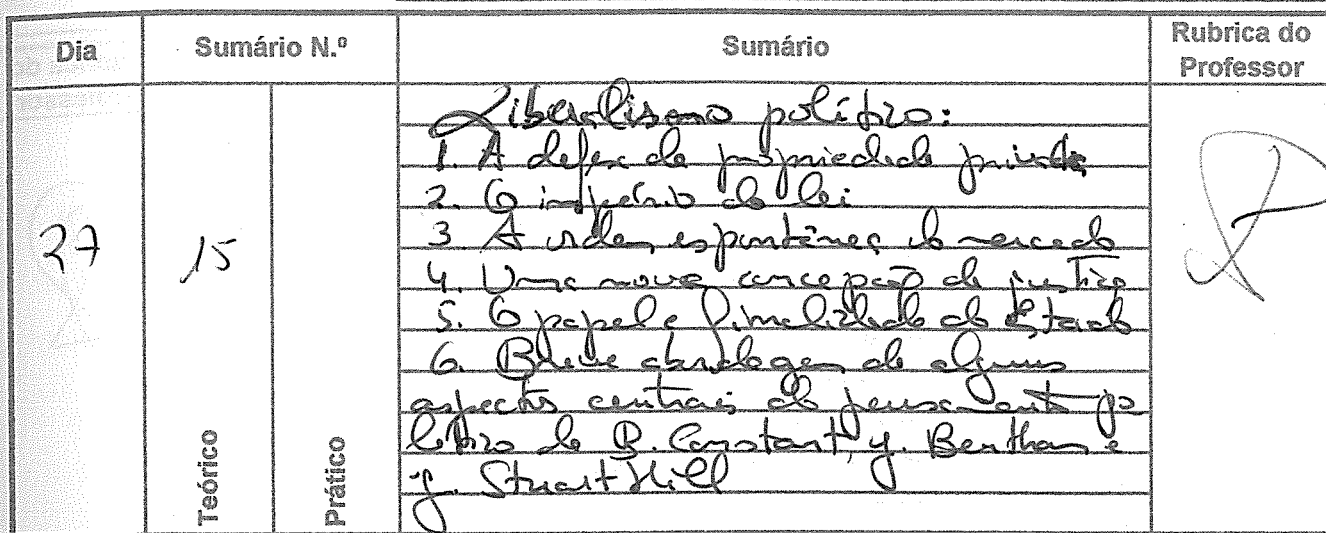 Dia Sumário N.º Sumário Rubrica do Professor
27 15
Teórico Prático
Liberalismo político:
1. A defesa da propriedade privada
2. O império da lei
3. A ordem espontânea do mercado
4. Uma nova concepção de justiça
5. O papel e finalidade do Estado
6. Breve abordagem de alguns
aspectos centrais do pensamento po
lítico de B. Constant, J. Bentham e
J. Stuart Mill